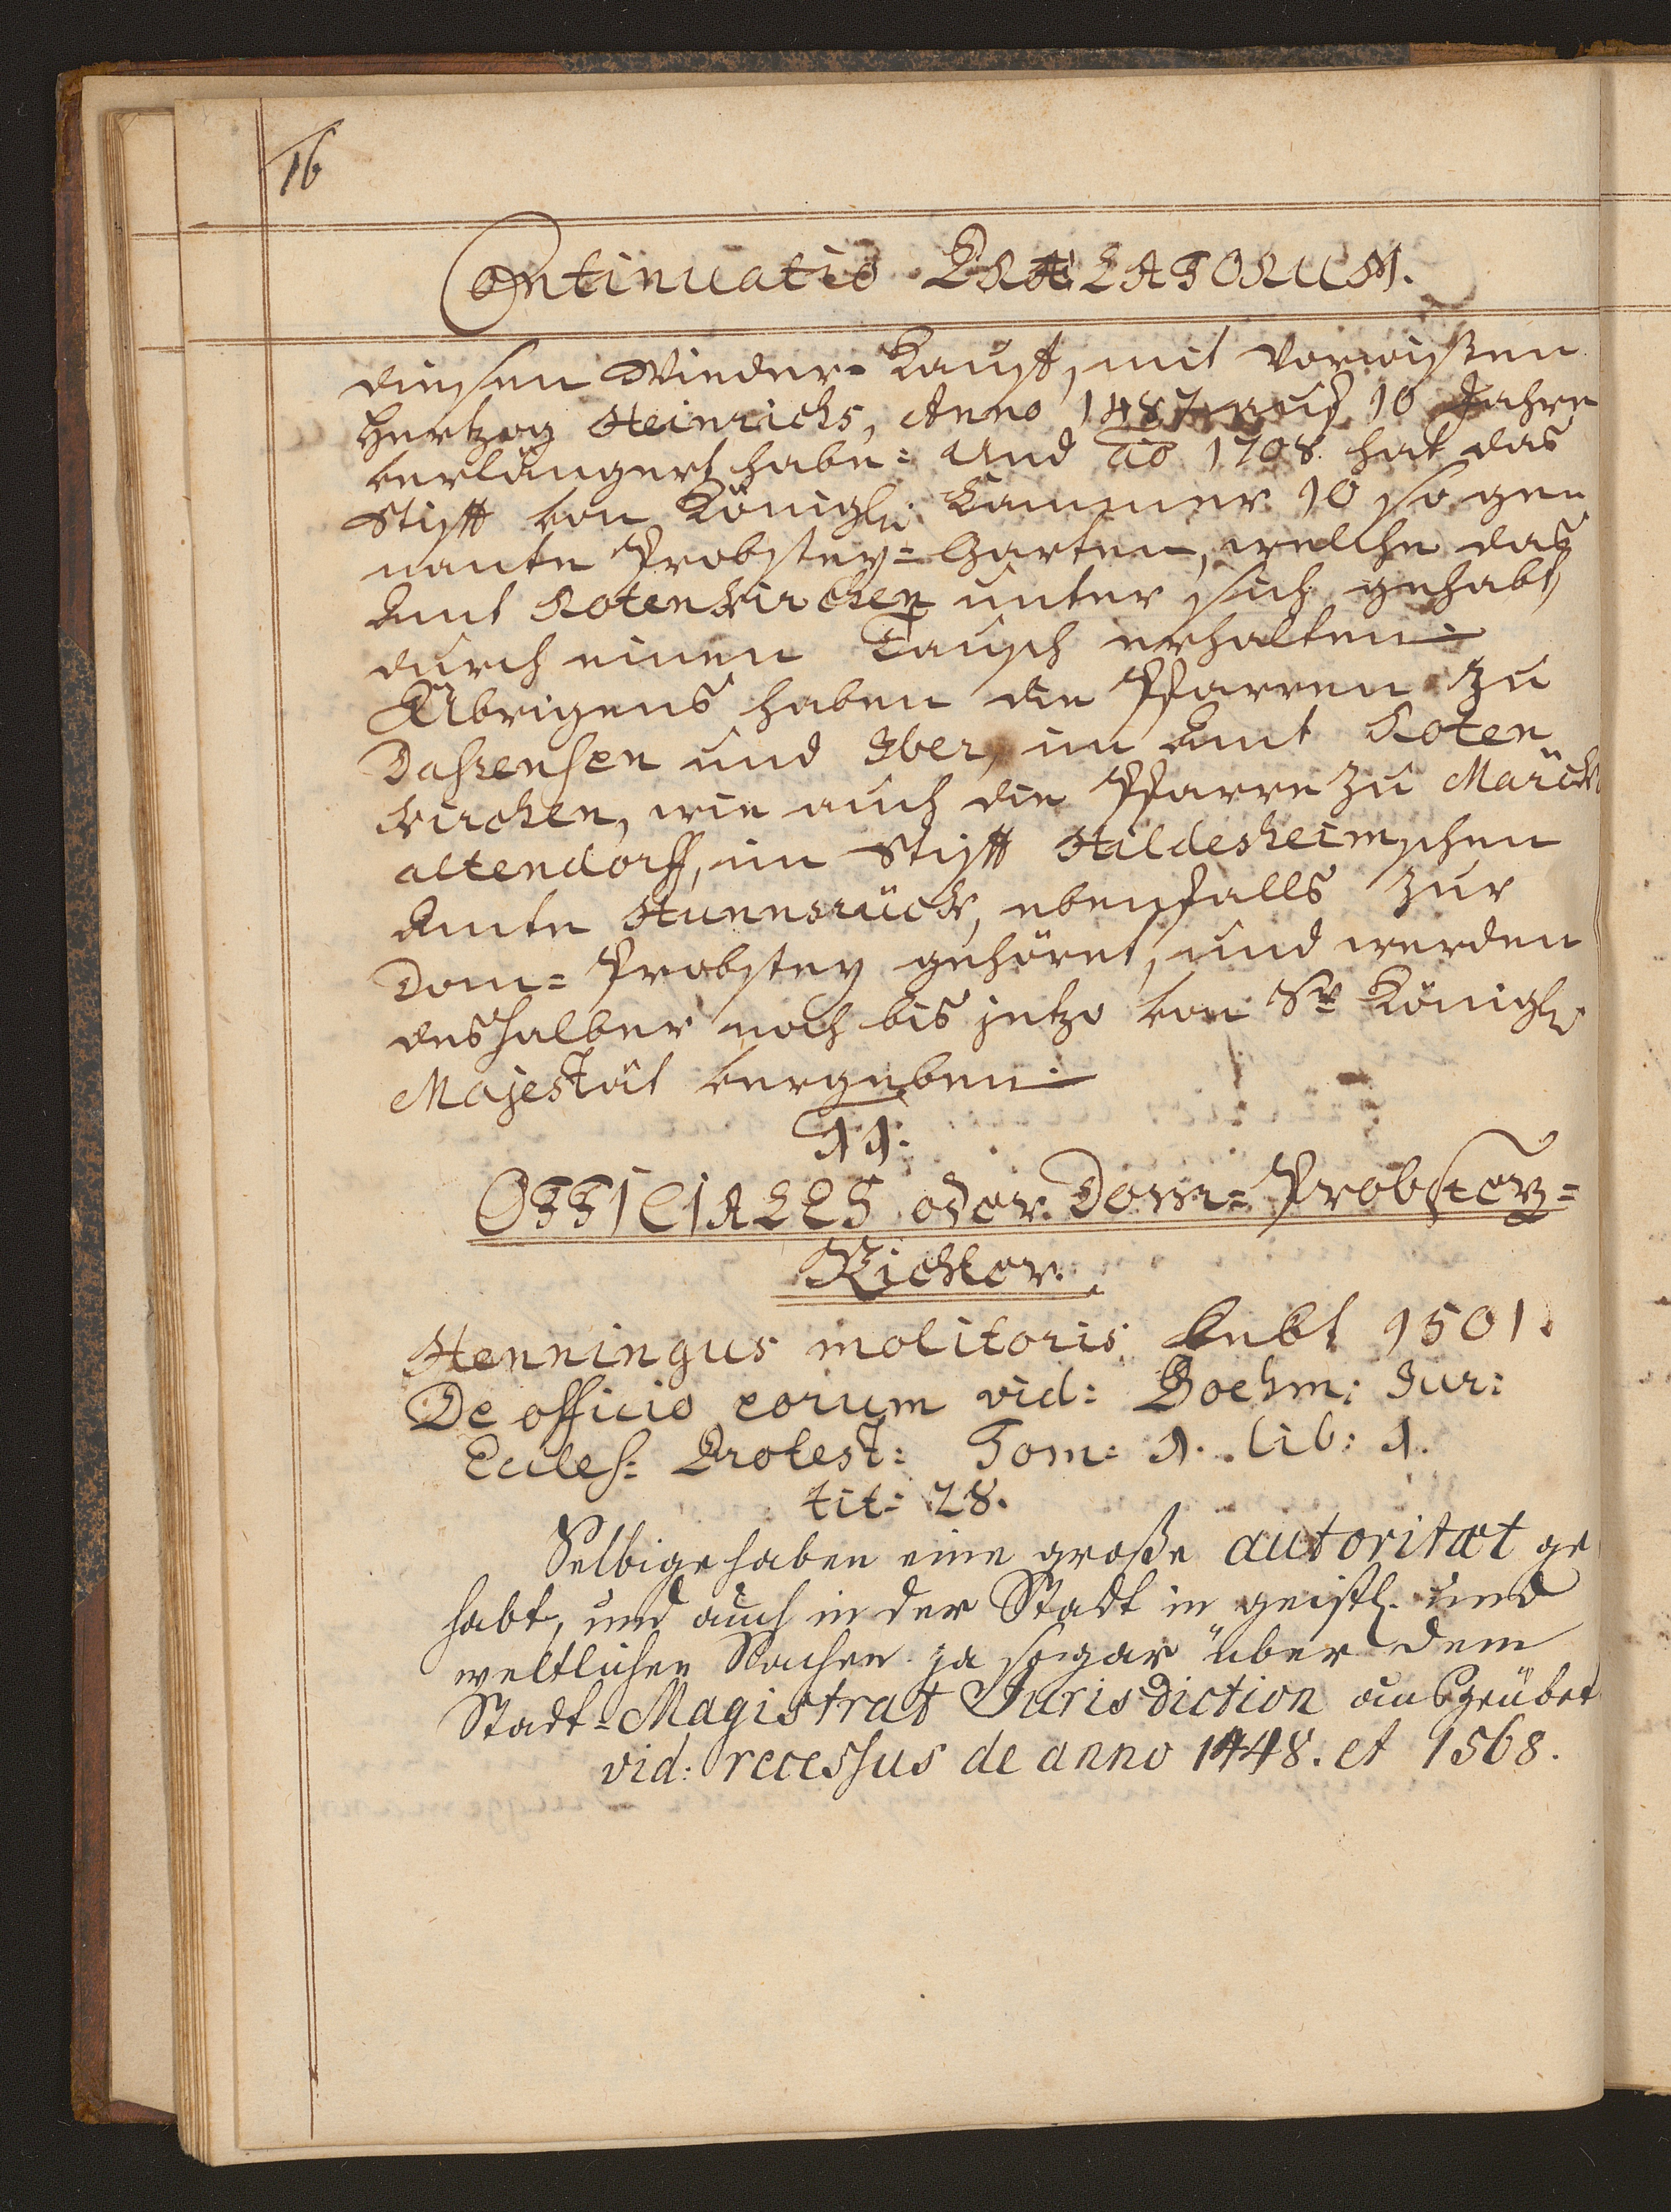 16
Continuatio PRAELATORUM.
diesen Wieder-Kauff, mit Vorwißen
Hertzog Heinrichs, Anno 1487 auf 10 Jahre
verlängert habe: Und ao 1708. hat das
Stifft von Königl: Cammer 10 so gen
nante Probstey=Garten, welche das
Amt Rotenkirchen unter sich gehabt,
durch einen Tausch erhalten.
Übrigens haben die Pfarren zu
Daßensen und Iber, im Amt Roten
kirchen, wie auch die Pfarre zu Marck
altendorff, im Stifft Hildesheimschen
Amte Hunnesrück, ebenfalls zur
Dom=Probstey gehöret, und werden
deshalber noch bis jetzo von Sr Königl:
Majestät vergeben.
11.
OFFICIALES oder Dom=Probstey=
Richter.
Henningus molitoris lebt 1501.
De officio eorum vid: Boehm: Jur:
Eccles: Protest: Tom: 1. lib: 1.
tit: 28.
Selbige haben eine große autoritæt ge
habt, und auch in der Stadt in geistl. und
weltlichen Sachen ja sogar über dem
Stadt-Magistrat Jurisdiction ausgeübet
vid: recessus de anno 1448. et 1568.